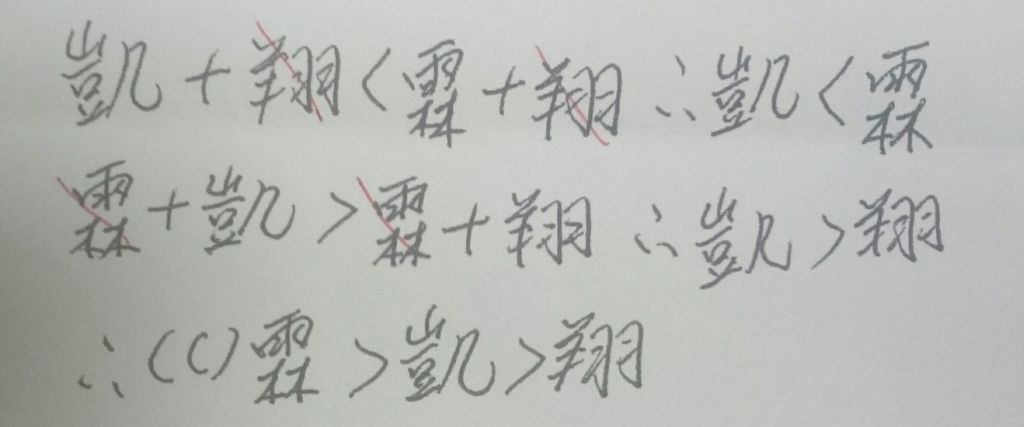 凱+翔<霖+翔 ∴凱<霖
霖+凱>霖+翔 ∴凱>翔
∴(C)霖>凱>翔